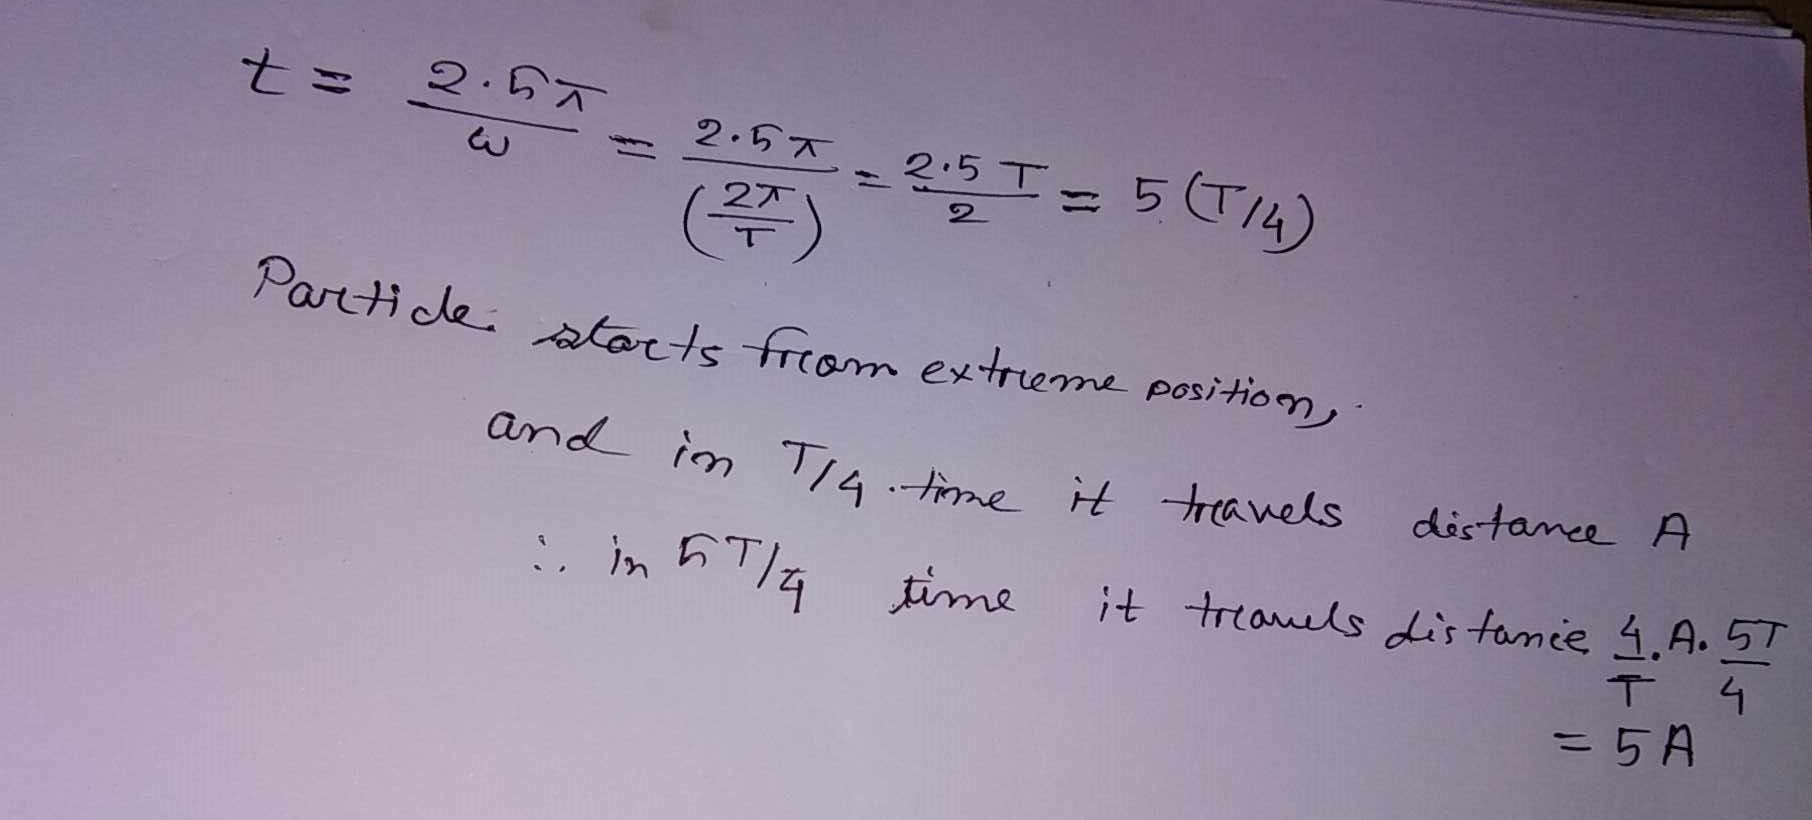 t = 2.5π/ω = 2.5π/(2π/T) = 2.5T/2 = 5(T/4)
Particle starts from extreme position,
and in T/4 time it travels distance A
∴ in 5T/4 time it travels distance 4/T . A . 5T/4
= 5A